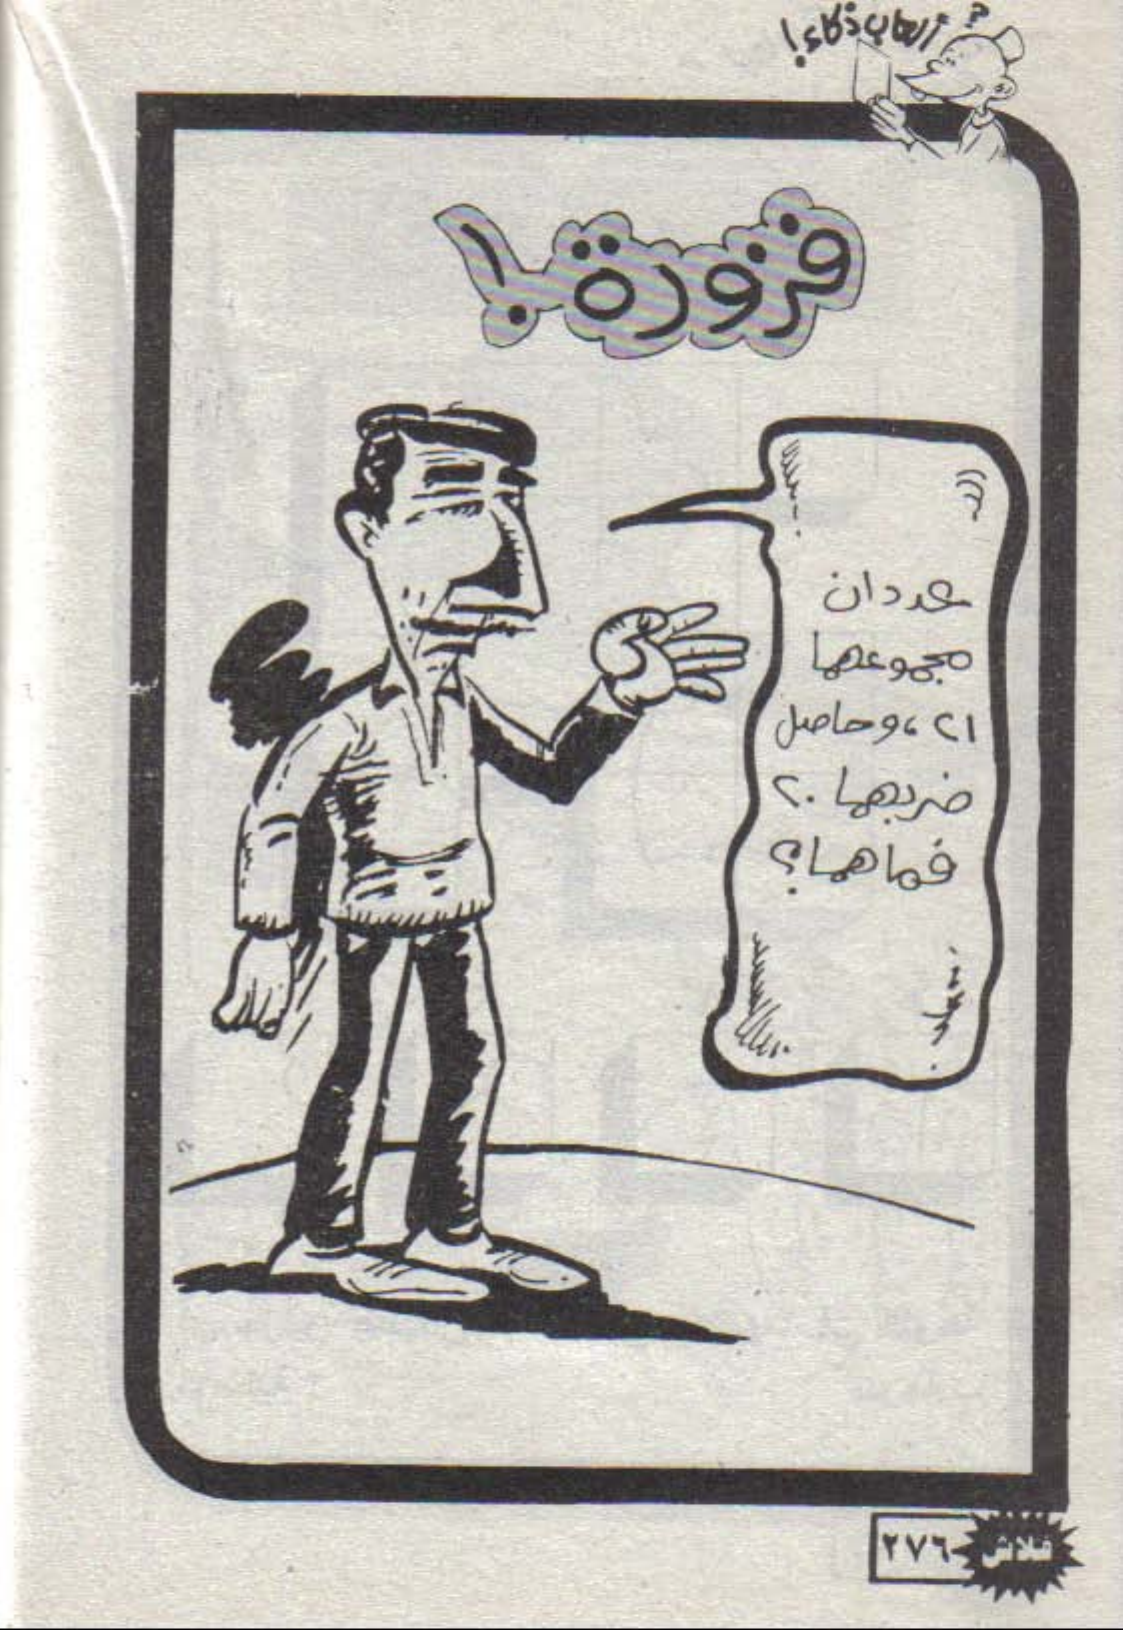 ألعاب ذكاء!
فزورة!
عددان
مجموعهما
٢١ ،وحاصل
ضربهما ٢٠
فما هما؟
فلاش ٢٧٦